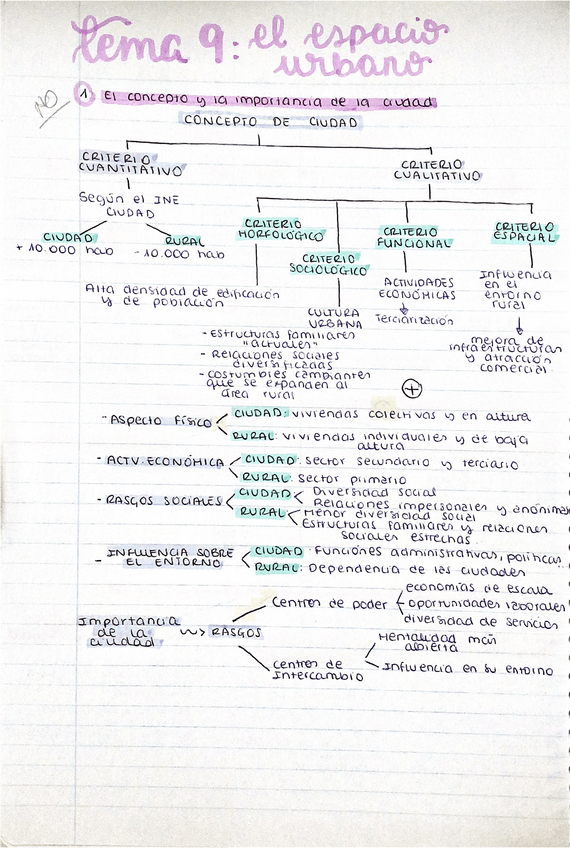 tema 9: el espacio
urbano
NO
1 El concepto y la importancia de la ciudad
CONCEPTO DE CIUDAD
CRITERIO
CUANTITATIVO
CRITERIO
CUALITATIVO
Según el INE
CIUDAD
CIUDAD
+ 10.000 hab
RURAL
- 10.000 hab
CRITERIO
MORFOLÓGICO
CRITERIO
SOCIOLÓGICO
CRITERIO
FUNCIONAL
CRITERIO
ESPACIAL
Alta densidad de edificación
y de población
CULTURA
URBANA
- Estructuras familiares
"actuales"
- Relaciones sociales
diversificadas
- Costumbres cambiantes
que se expanden al
área rural
ACTIVIDADES
ECONÓMICAS
Terciarización
Influencia
en el
entorno
rural
mejora de
infraestructuras
y atracción
comercial
+
- ASPECTO FÍSICO
CIUDAD: viviendas colectivas y en altura
RURAL: viviendas individuales y de baja
altura
- ACTV. ECONÓMICA
CIUDAD: sector secundario y terciario
RURAL: sector primario
- RASGOS SOCIALES
CIUDAD
Diversidad social
Relaciones impersonales y anónimas
RURAL
Menor diversidad social
Estructuras familiares y relaciones
sociales estrechas
- INFLUENCIA SOBRE
EL ENTORNO
CIUDAD: Funciones administrativas, políticas
RURAL: Dependencia de las ciudades
Importancia
de la
ciudad
RASGOS
Centros de poder
economías de escala
oportunidades laborales
diversidad de servicios
Centros de
Intercambio
Mentalidad más
abierta
Influencia en su entorno